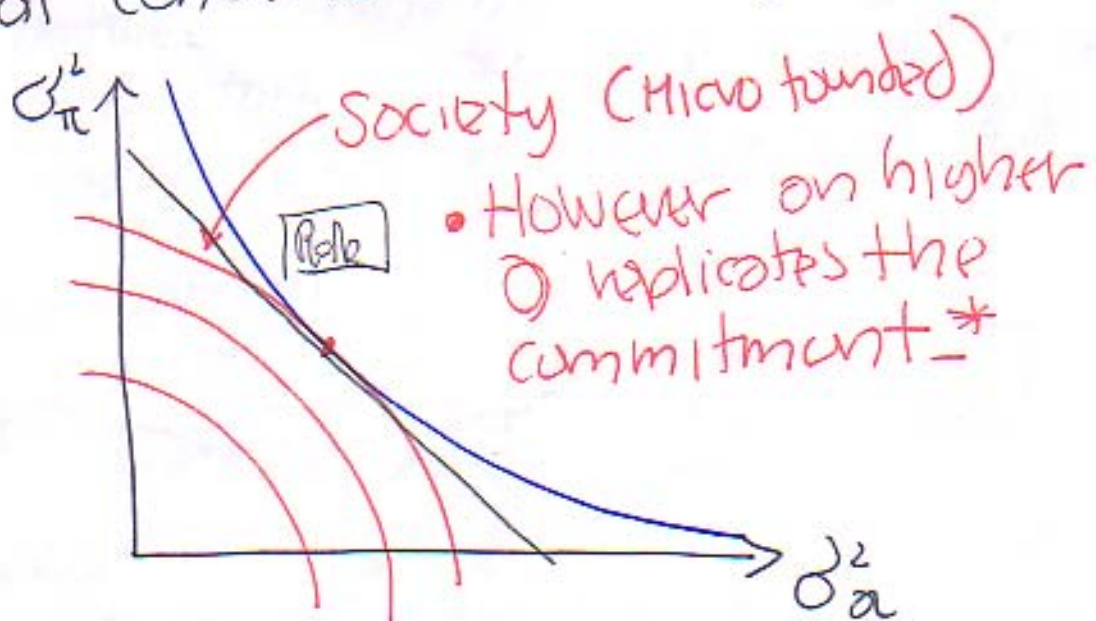 σ²π
Society (Micro founded)
Rule
• However on higher
replicates the
commitment *
σ²x